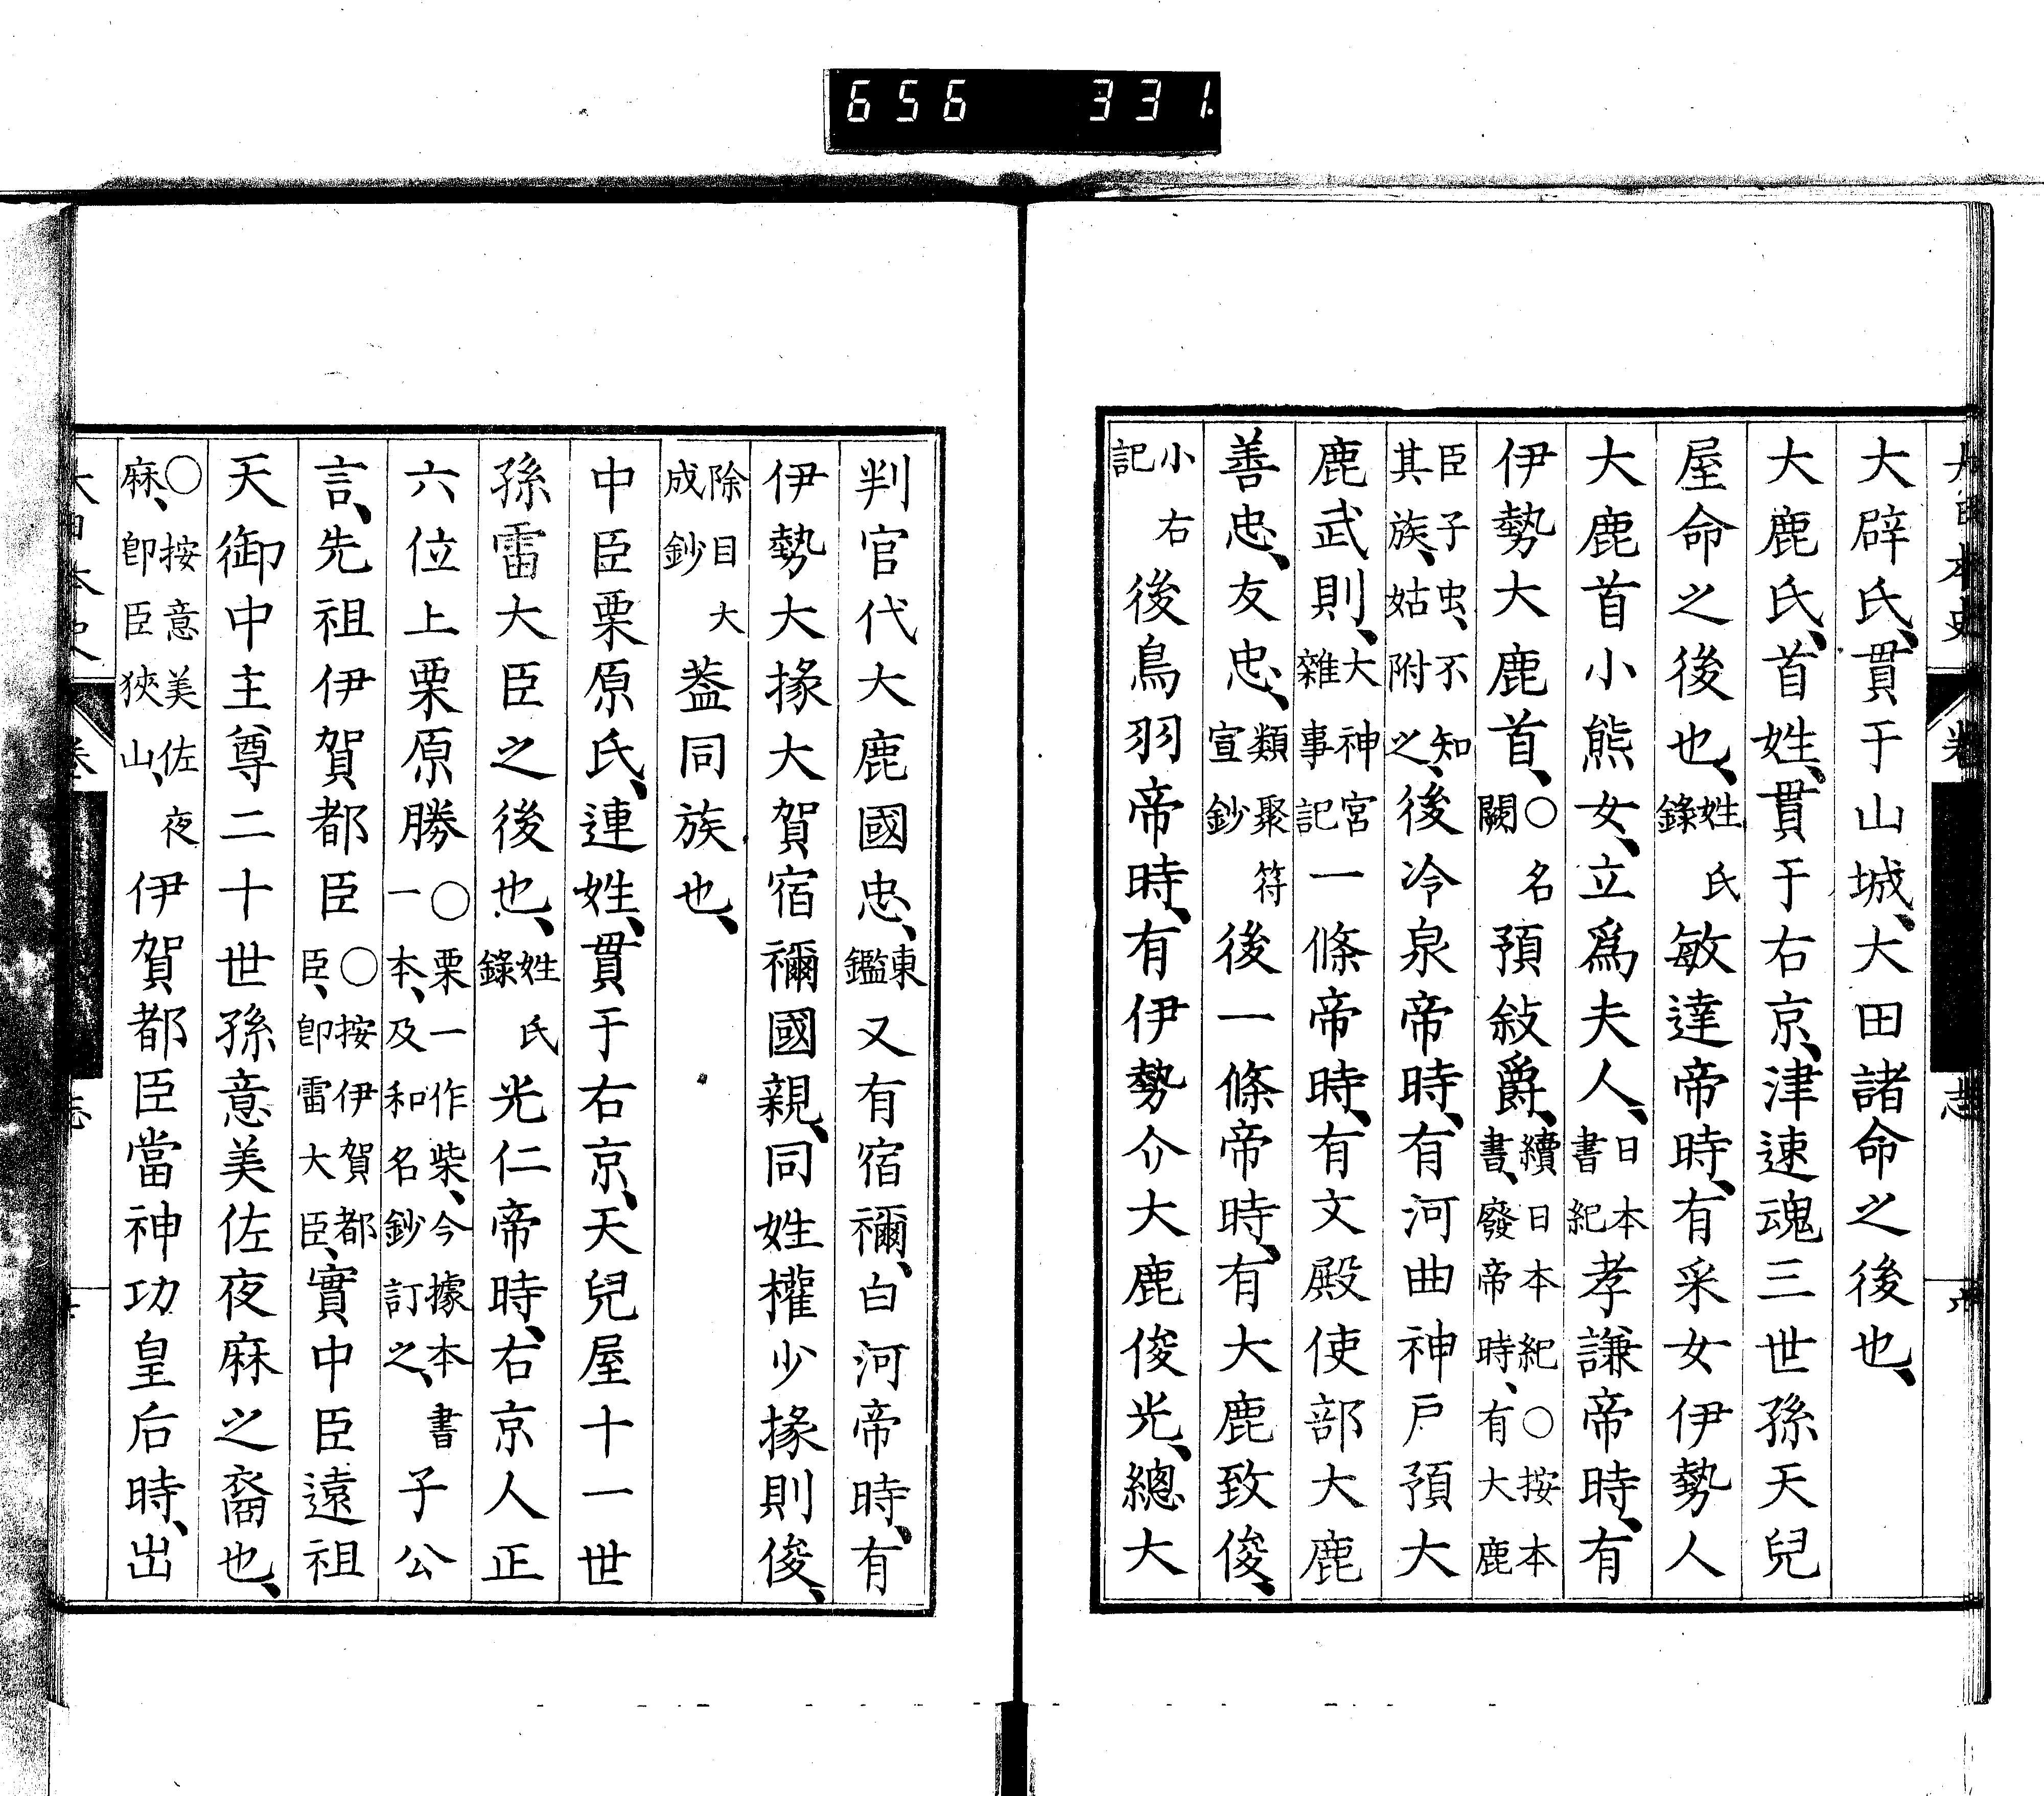 656 331
大辟氏、貫于山城、大田諸命之後也、
大鹿氏、首姓、貫于右京、津速魂三世孫天兒
屋命之後也、姓氏錄敏達帝時、有采女伊勢人
大鹿首小熊女、立爲夫人、日本書紀孝謙帝時、有
伊勢大鹿首、○名闕預敍爵、續日本紀○按本書、廢帝時、有大鹿
臣子虫、不知其族、姑附之、後冷泉帝時、有河曲神戸預大
鹿武則、大神宮雜事記一條帝時、有文殿使部大鹿
善忠、友忠、類聚符宣鈔後一條帝時、有大鹿致俊、
小右記後鳥羽帝時、有伊勢介大鹿俊光、總大
判官代大鹿國忠、東鑑又有宿禰、白河帝時、有
伊勢大掾大賀宿禰國親、同姓權少掾則俊、
除目大成鈔蓋同族也、
中臣栗原氏、連姓、貫于右京、天兒屋十一世
孫雷大臣之後也、姓氏錄光仁帝時、右京人正
六位上栗原勝○栗一作柴、今據本書一本、及和名鈔訂之、子公
言、先祖伊賀都臣○按伊賀都臣、卽雷大臣、實中臣遠祖
天御中主尊二十世孫意美佐夜麻之裔也、
○按意美佐夜麻、卽臣狹山、伊賀都臣當神功皇后時、出